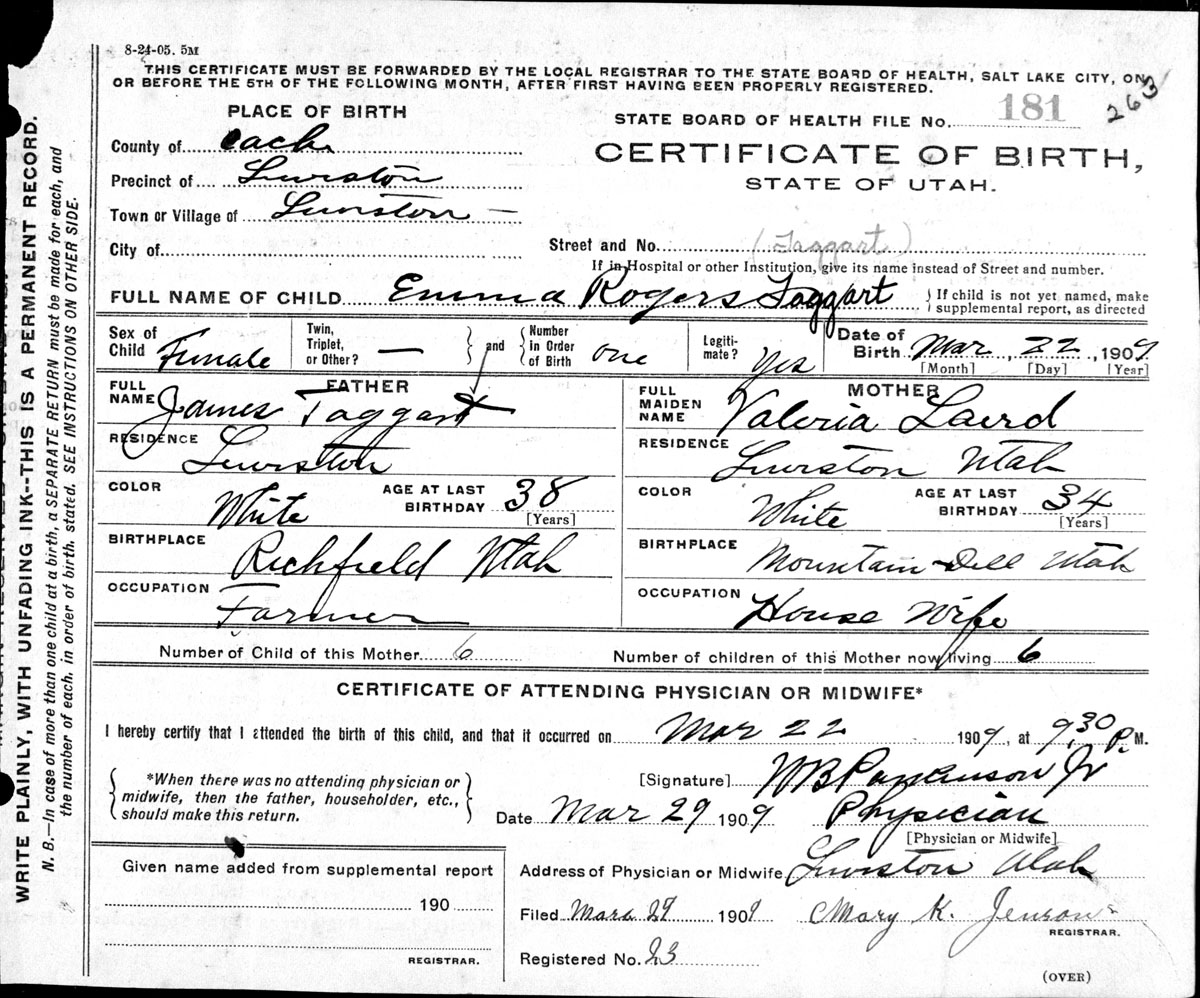 8-24-05. 5M
THIS CERTIFICATE MUST BE FORWARDED BY THE LOCAL REGISTRAR TO THE STATE BOARD OF HEALTH, SALT LAKE CITY, ON
OR BEFORE THE 5TH OF THE FOLLOWING MONTH, AFTER FIRST HAVING BEEN PROPERLY REGISTERED.
263
PLACE OF BIRTH
STATE BOARD OF HEALTH FILE No. 181
County of Cache
CERTIFICATE OF BIRTH,
Precinct of Lewiston
STATE OF UTAH.
Town or Village of Lewiston —
City of
Street and No. (Taggart)
If in Hospital or other Institution, give its name instead of Street and number.
FULL NAME OF CHILD Emma Rogers Taggart
If child is not yet named, make
supplemental report, as directed
Sex of Child Female
Twin, Triplet, or Other? —
and
Number in Order of Birth one
Legiti- mate? Yes
Date of Birth Mar, 22, 1909
[Month] [Day] [Year]
FATHER
FULL NAME James Taggart
MOTHER
FULL MAIDEN NAME Valeria Laird
RESIDENCE Lewiston
RESIDENCE Lewiston Utah
COLOR White AGE AT LAST BIRTHDAY 38 [Years]
COLOR White AGE AT LAST BIRTHDAY 34 [Years]
BIRTHPLACE Richfield Utah
BIRTHPLACE Mountain-Dell Utah
OCCUPATION Farmer
OCCUPATION House Wife
Number of Child of this Mother 6 Number of children of this Mother now living 6
CERTIFICATE OF ATTENDING PHYSICIAN OR MIDWIFE*
I hereby certify that I attended the birth of this child, and that it occurred on Mar 22 1909, at 9,30 P. M.
*When there was no attending physician or
midwife, then the father, householder, etc.,
should make this return.
[Signature] WB Parkinson Jr
Date Mar 29 1909 Physician
[Physician or Midwife]
Given name added from supplemental report
190
REGISTRAR.
Address of Physician or Midwife Lewiston Utah
Filed 29 1909 Mary K. Jenson
REGISTRAR.
Registered No. 23
(OVER)
WRITE PLAINLY, WITH UNFADING INK--THIS IS A PERMANENT RECORD.
N. B.—In case of more than one child at a birth, a SEPARATE RETURN must be made for each, and
the number of each, in order of birth, stated. SEE INSTRUCTIONS ON OTHER SIDE.